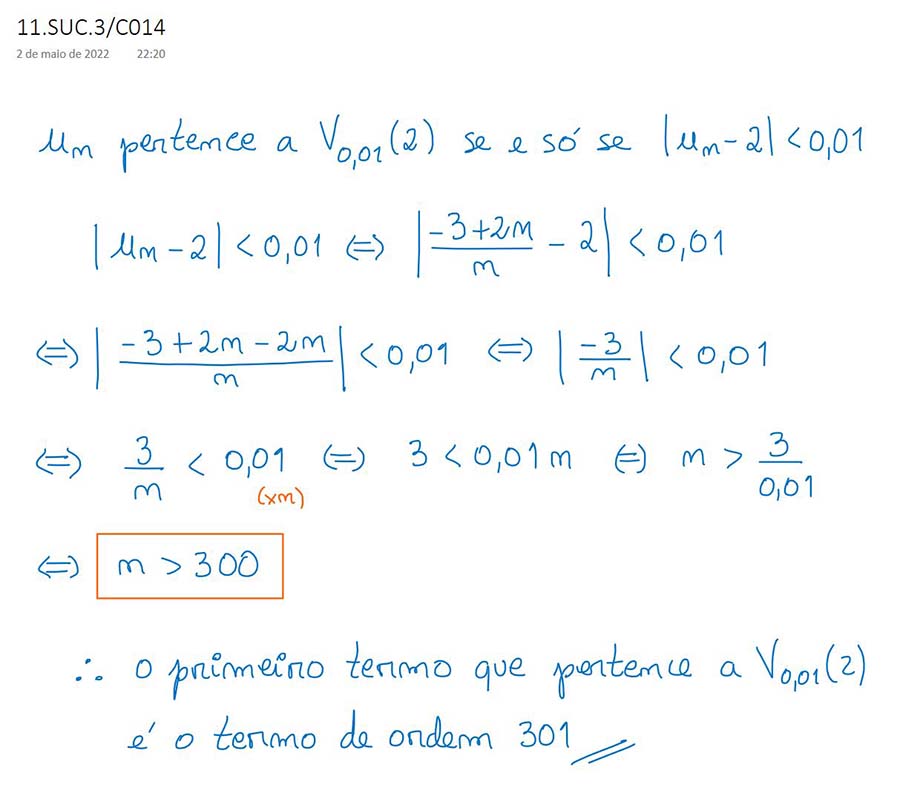 11.SUC.3/C014
2 de maio de 2022 22:20
un pertence a V0,01(2) se e só se |un-2| < 0,01
|un-2| < 0,01 ⇔ |(-3+2n)/n - 2| < 0,01
⇔ |(-3+2n-2n)/n| < 0,01 ⇔ |-3/n| < 0,01
⇔ 3/n < 0,01 (xn) ⇔ 3 < 0,01n ⇔ n > 3/0,01
⇔ n > 300
∴ o primeiro termo que pertence a V0,01(2)
é o termo de ordem 301